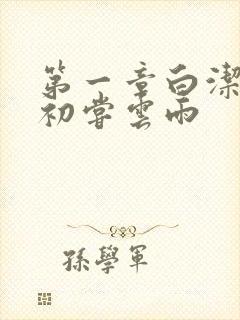 第一章白潔
初嘗雲雨
孫學軍